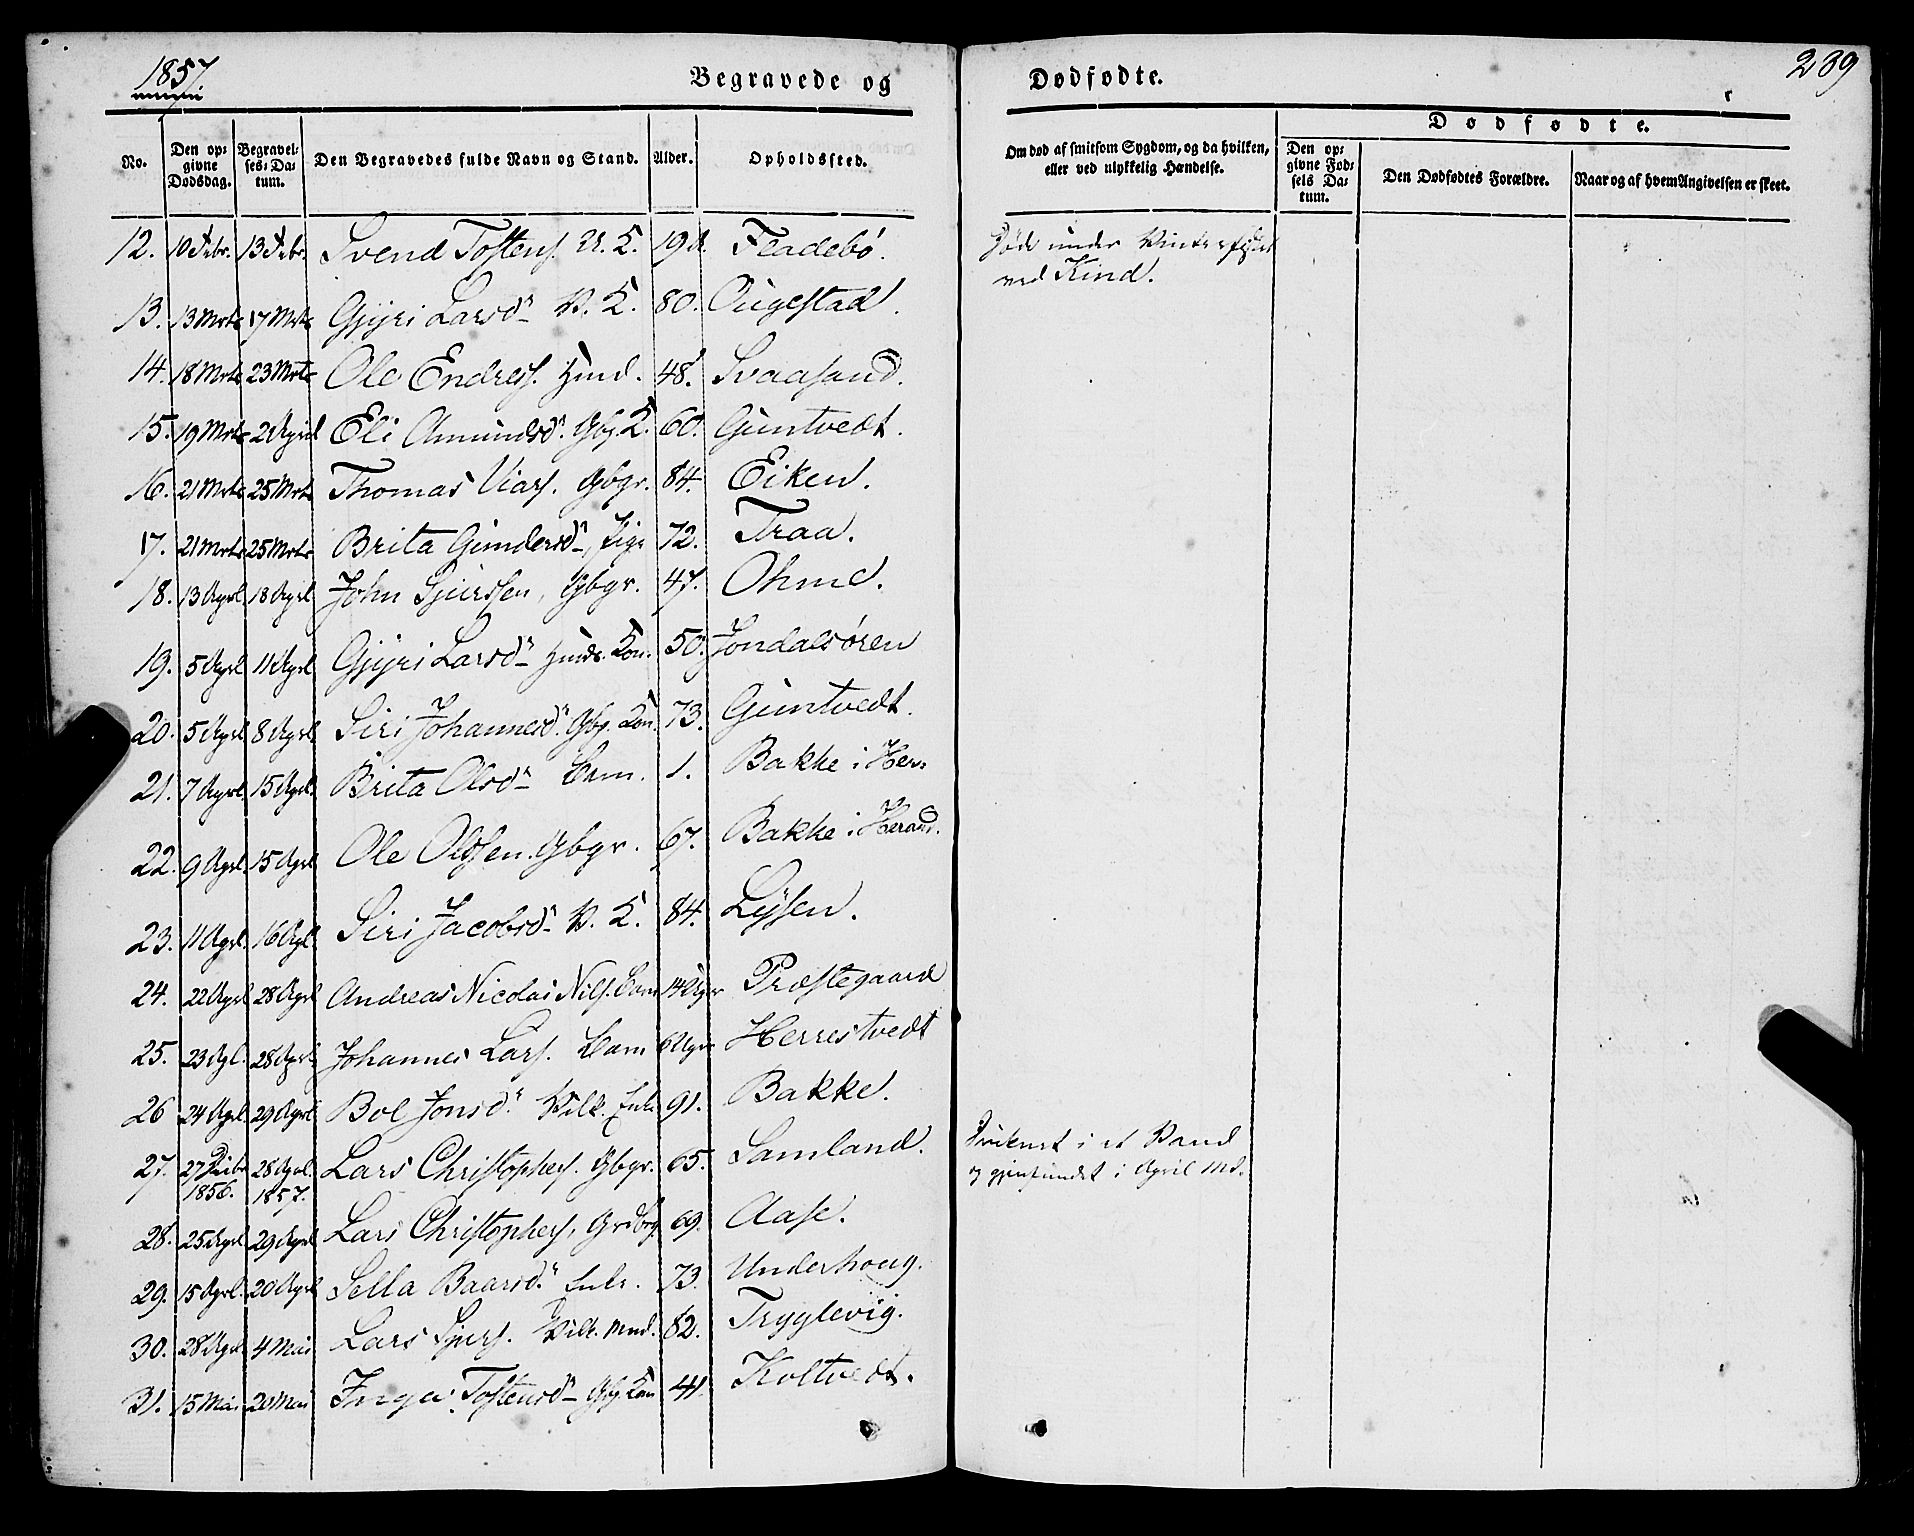 1857
Begravede og Dødfødte.
239
No.
Den opgivne Dødsdag.
Begravelses-Datum.
Den Begravedes fulde Navn og Stand.
Alder.
Opholdssted.
Om død af smitsom Sygdom, og da hvilken, eller ved ulykkelig Hændelse.
Dødfødte.
Den opgivne Fødsels Datum.
Den Dødfødtes Forældre.
Naar og af hvem Angivelsen er skeet.
12. 10 Febr. 13 Febr. Svend Tostens. U. K. 19 Fladebø. Døde under Vinterfisket
ved Kind.
13. 13 Mrts 17 Mrts Gjyri Larsdr V. K. 80. Augestad.
14. 18 Mrts 23 Mrts Ole Endres. Hmd. 48. Svaasand.
15. 19 Mrts 2 April Eli Amundsdr. Gbg. K. 60. Guntvedt.
16. 21 Mrts 25 Mrts Thomas Viars. Gbgr. 84. Eiken.
17. 21 Mrts 25 Mrts Brita Gundersdr, Pige 72. Traa.
18. 13 Aprl 18 Aprl John Sjurssen, Gbgr. 47. Ohme.
19. 5 Aprl 11 Aprl Gjyri Larsdr Hmds. Kon. 50. Jondalsøren
20. 5 Aprl 8 Aprl Siri Johannesdr. Gbg. Kon. 73. Guntvedt.
21. 7 Aprl. 15 Aprl. Brita Olsdr Barn. 1. Bakke i Her:
22. 9 Aprl. 15 Aprl Ole Olssen. Gbgr. 67. Bakke i Herand.
23. 11 Aprl. 16 Aprl. Siri Jacobsdr V. K. 84. Lyssen.
24. 22 Aprl 28 Aprl Andreas Nicolai Nils. Barn 14 Uger Præstegaard
25. 23 Apl. 28 Aprl. Johannes Lars. Barn 6 Uger Herrestvedt
26 24 Aprl. 29 Aprl Bol Jonsdr. Vilk. Enke 91. Bakke.
27. 27 Decbr 28 Aprl. Lars Christophers. Gbgr. 65. Samland. Druknet i et Vand
1856. 1857. og gjenfundet i April Md.
28. 25 Aprl 29 Aprl Lars Christophers, Grdbrg. 69. Aase.
29. 15 Aprl. 20 Aprl Sella Baarsdr. Enke. 73. Underhoug.
30. 28 Aprl 4 Mai Lars Sjurs. Vilk. Mnd. 82. Tryglevig.
31. 15 Mai 20 Mai Inga Tostensdr Gbg. Kon 41. Koltvedt.